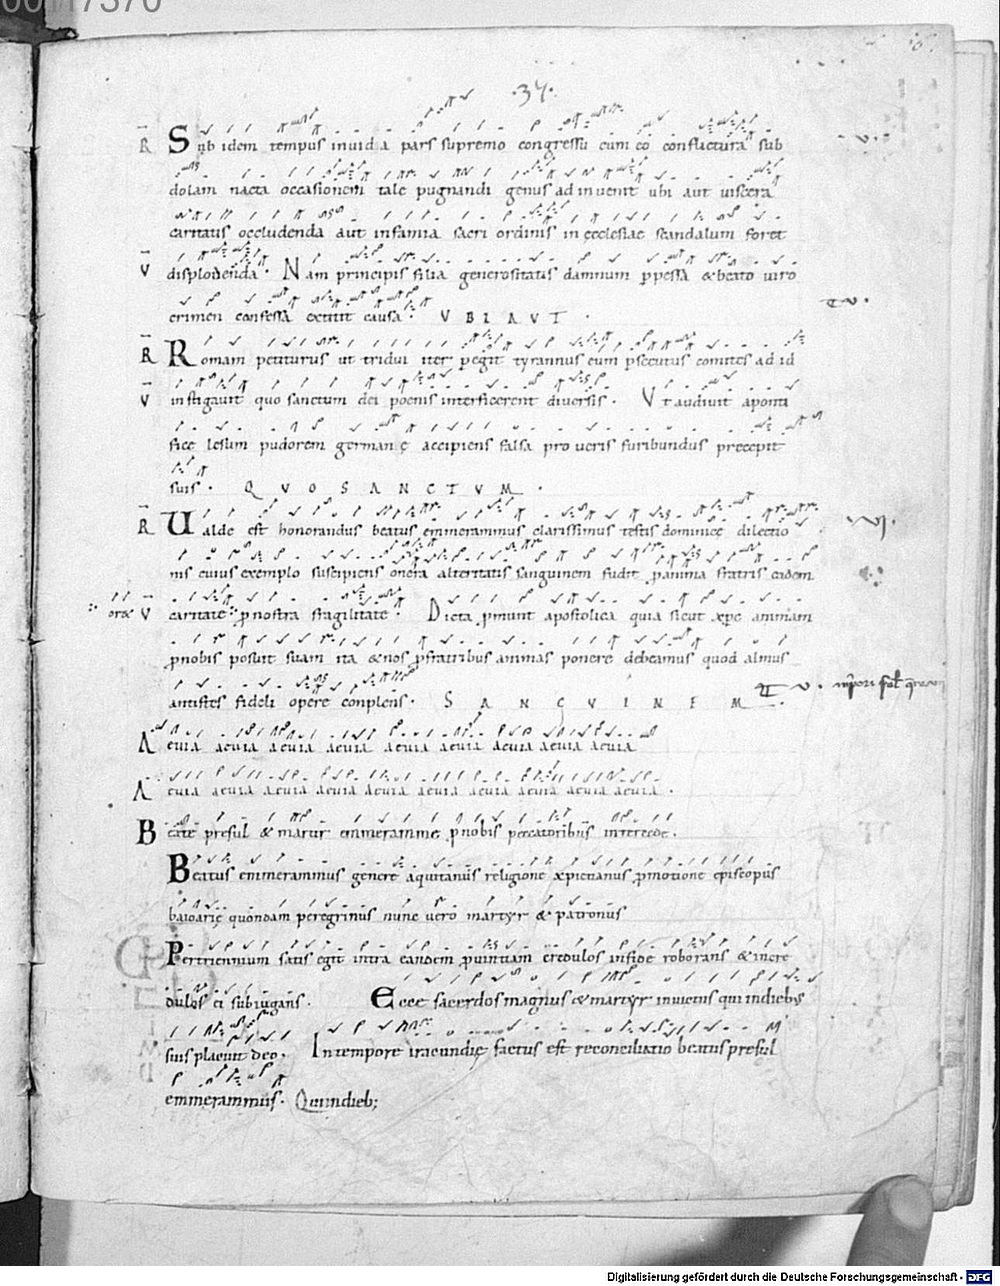 ·37·
R Sub idem tempus inuida pars supremo congressu cum eo conflictura sub
dolam nacta occasionem tale pugnandi genus adinuenit ubi aut uiscera
caritatis occludenda aut infamia sacri ordinis in ęcclesiae scandalum foret
V displodenda. Nam principis filia generositatis damnum ppessa & beato uiro
crimen confessa extitit causa. VBI AVT.
R Romam petiturus ut tridui iter pegit tyrannus cum psecutus comites ad id
V instigauit quo sanctum dei poenis interficerent diuersis. Vt audiuit aponti
fice lesum pudorem germanę accipiens falsa pro ueris furibundus precepit
suis. QVO SANCTVM.
R Ualde est honorandus beatus emmerammus clarissimus testis dominicę dilectio
·VI·
nis cuius exemplo suscipiens onera alteritatis sanguinem fudit panima fratris eadem
V caritate pnostra fragilitate. Dicta pmunt apostolica quia sicut xpc animam
pnobis posuit suam ita & nos pfratribus animas ponere debeamus quod almus
antistes fideli opere conplens. SANGVINEM.
A euia aeuia aeuia aeuia aeuia aeuia aeuia aeuia aeuia
A euia aeuia aeuia aeuia aeuia aeuia aeuia aeuia aeuia.
Beate presul & martir emmeramme pnobis peccatoribus intercede.
Beatus emmerammus genere aquitanus religione xpictianus pmotione episcopus
baioarię quondam peregrinus nunc uero martyr & patronus
Pertriennium satis egit intra eandem puintiam credulos infide roborans & incre
dulos ei subiugans. Ecce sacerdos magnus & martyr inuictus qui indiebus
suis placuit deo. In tempore iracundię factus est reconciliatio beatus presul
emmerammus. Quiindieb;
Digitalisierung gefördert durch die Deutsche Forschungsgemeinschaft - DFG